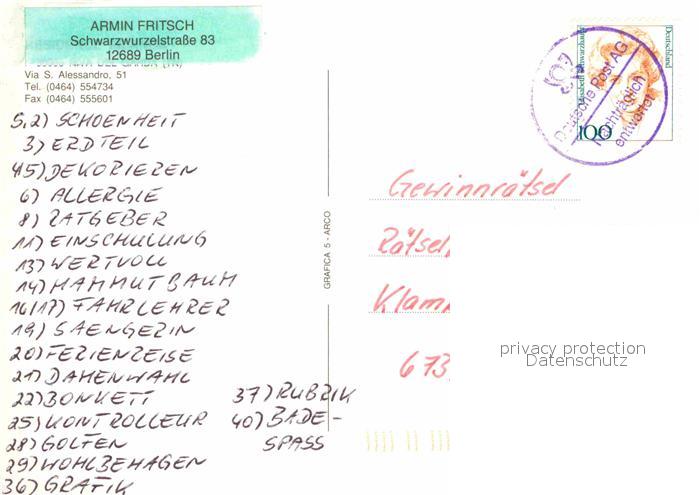 ARMIN FRITSCH
Schwarzwurzelstraße 83
12689 Berlin
Via S. Alessandro, 51
Tel. (0464) 554734
Fax (0464) 555601
5,2) SCHOENHEIT
3) ERDTEIL
45) DEKORIEREN
6) ALLERGIE
8) RATGEBER
11) EINSCHULUNG
13) WERTVOLL
14) MAMMUTBAUM
16/17) FAHRLEHRER
19) SAENGERIN
20) FERIENREISE
21) DAMENWAHL
22) BONKETT
25) KONTROLLEUR
28) GOLFEN
29) WOHLBEHAGEN
36) GRAFIK
37) RUBRIK
40) BADE-
SPASS
GRAFICA 5 - ARCO
Deutschland
100
Deutsche Post AG
Nachträglich
entwertet
Gewinnrätsel
Rätsel
Klam
673
privacy protection
Datenschutz